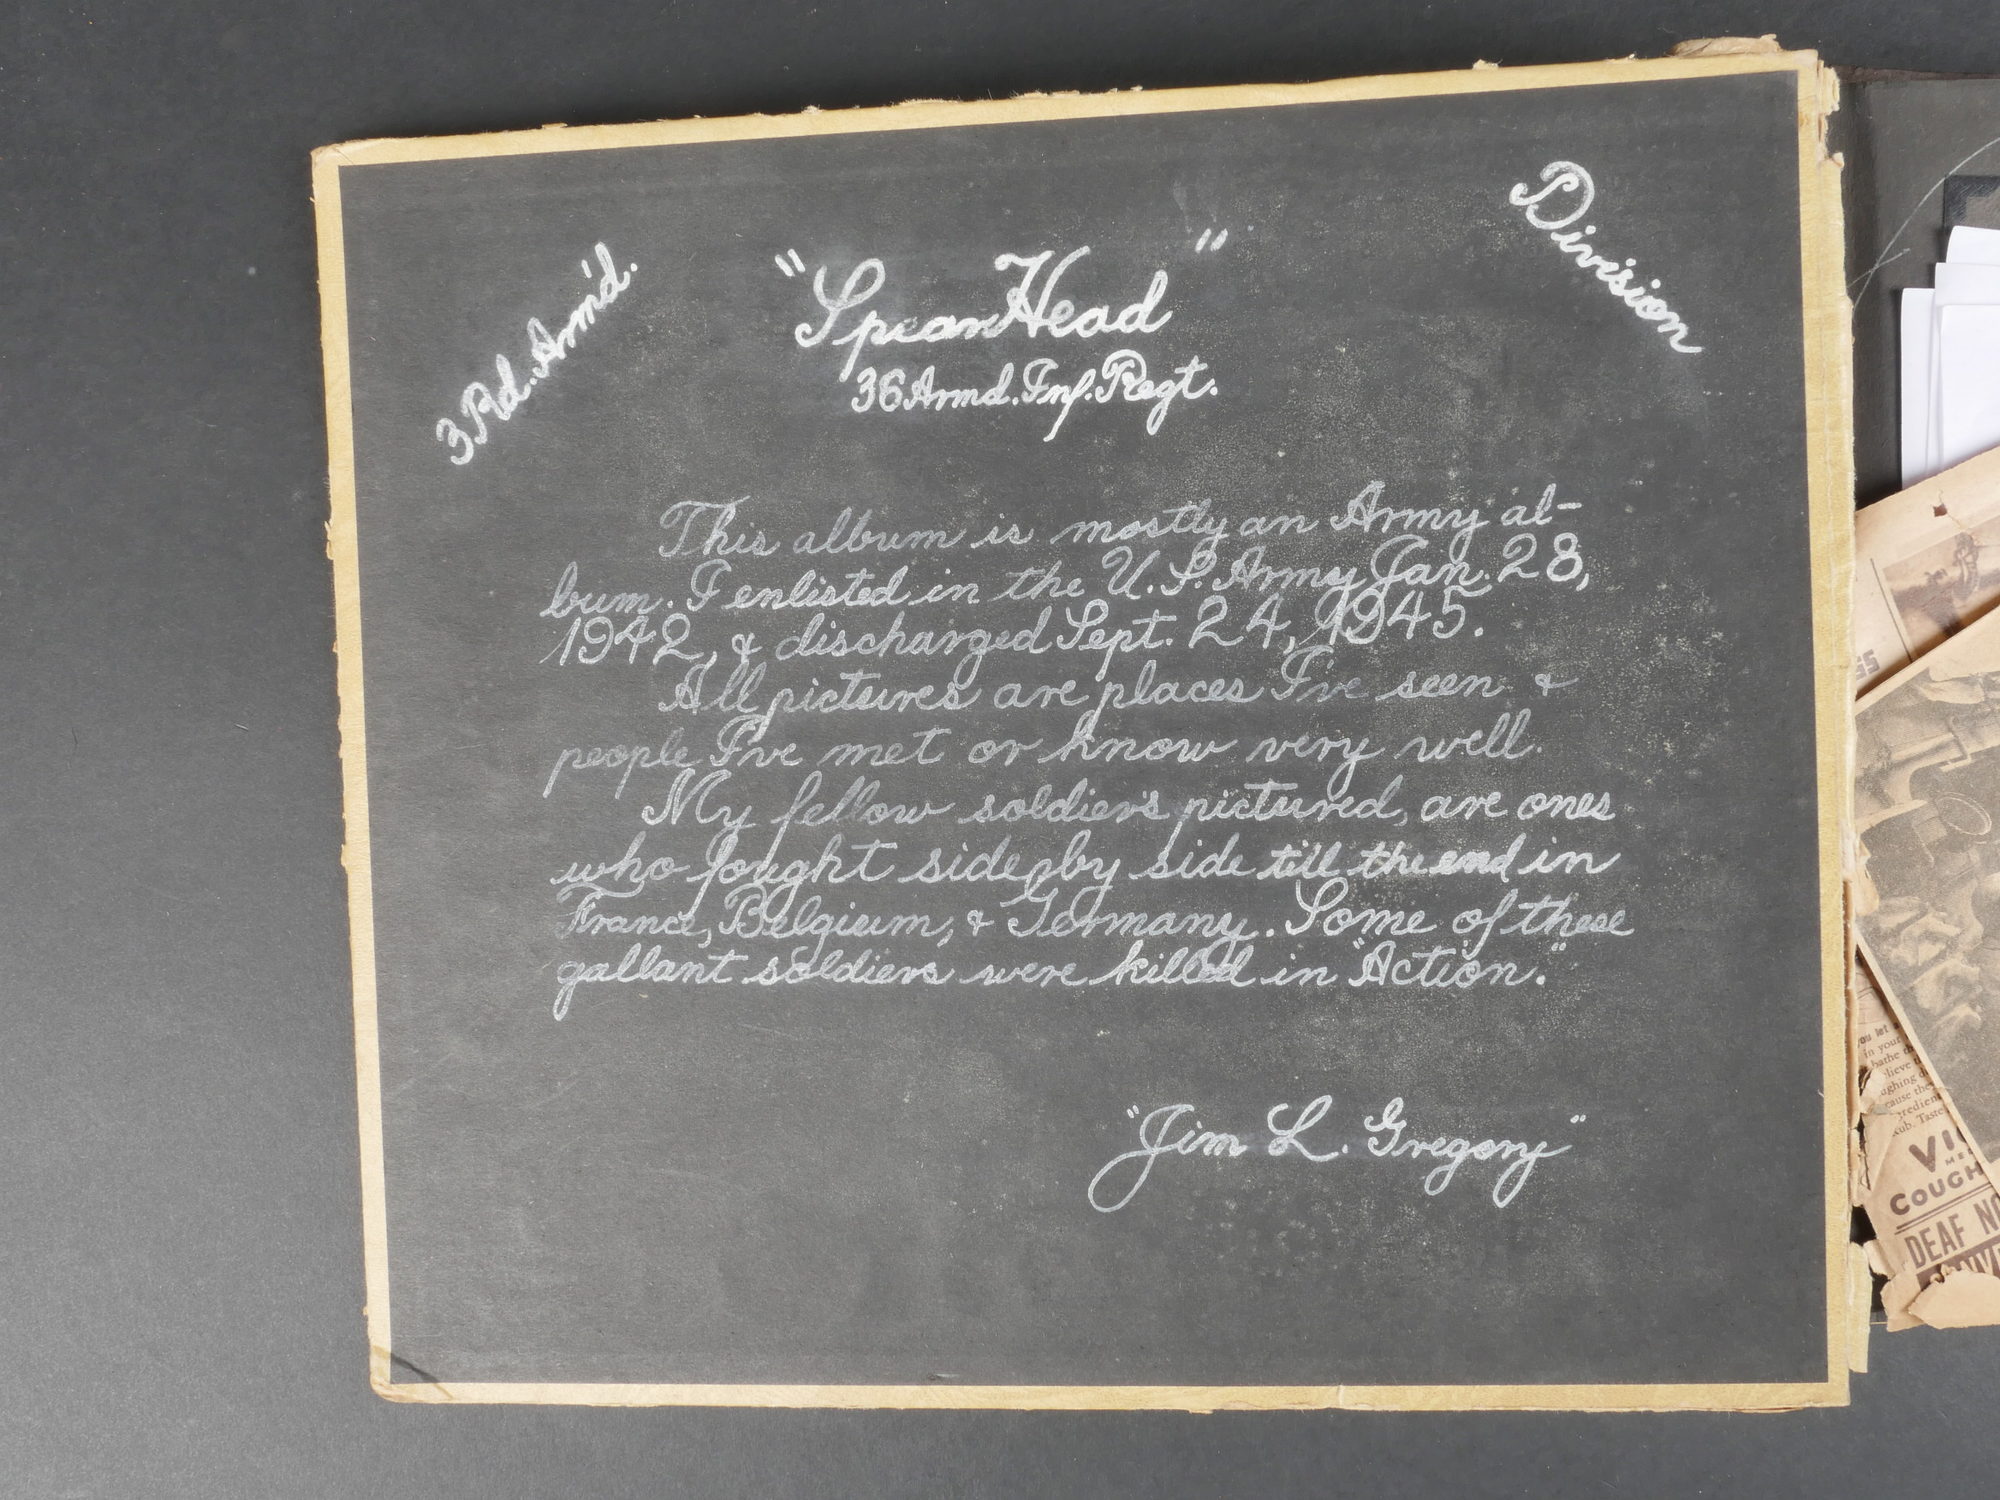 3Rd. Arm'd.
Division
"SpearHead"
36 Armd. Inf. Regt.
This album is mostly an Army al-
bum. I enlisted in the U.S. Army Jan. 28,
1942, & discharged Sept. 24, 1945.
All pictures are places I've seen &
people I've met or know very well.
My fellow soldiers pictured, are ones
who fought side by side till the end in
France, Belgium, & Germany. Some of these
gallant soldiers were killed in "Action."
"Jim L. Gregory"
you let a
in your
bathe
cause the
COUGH
DEAF